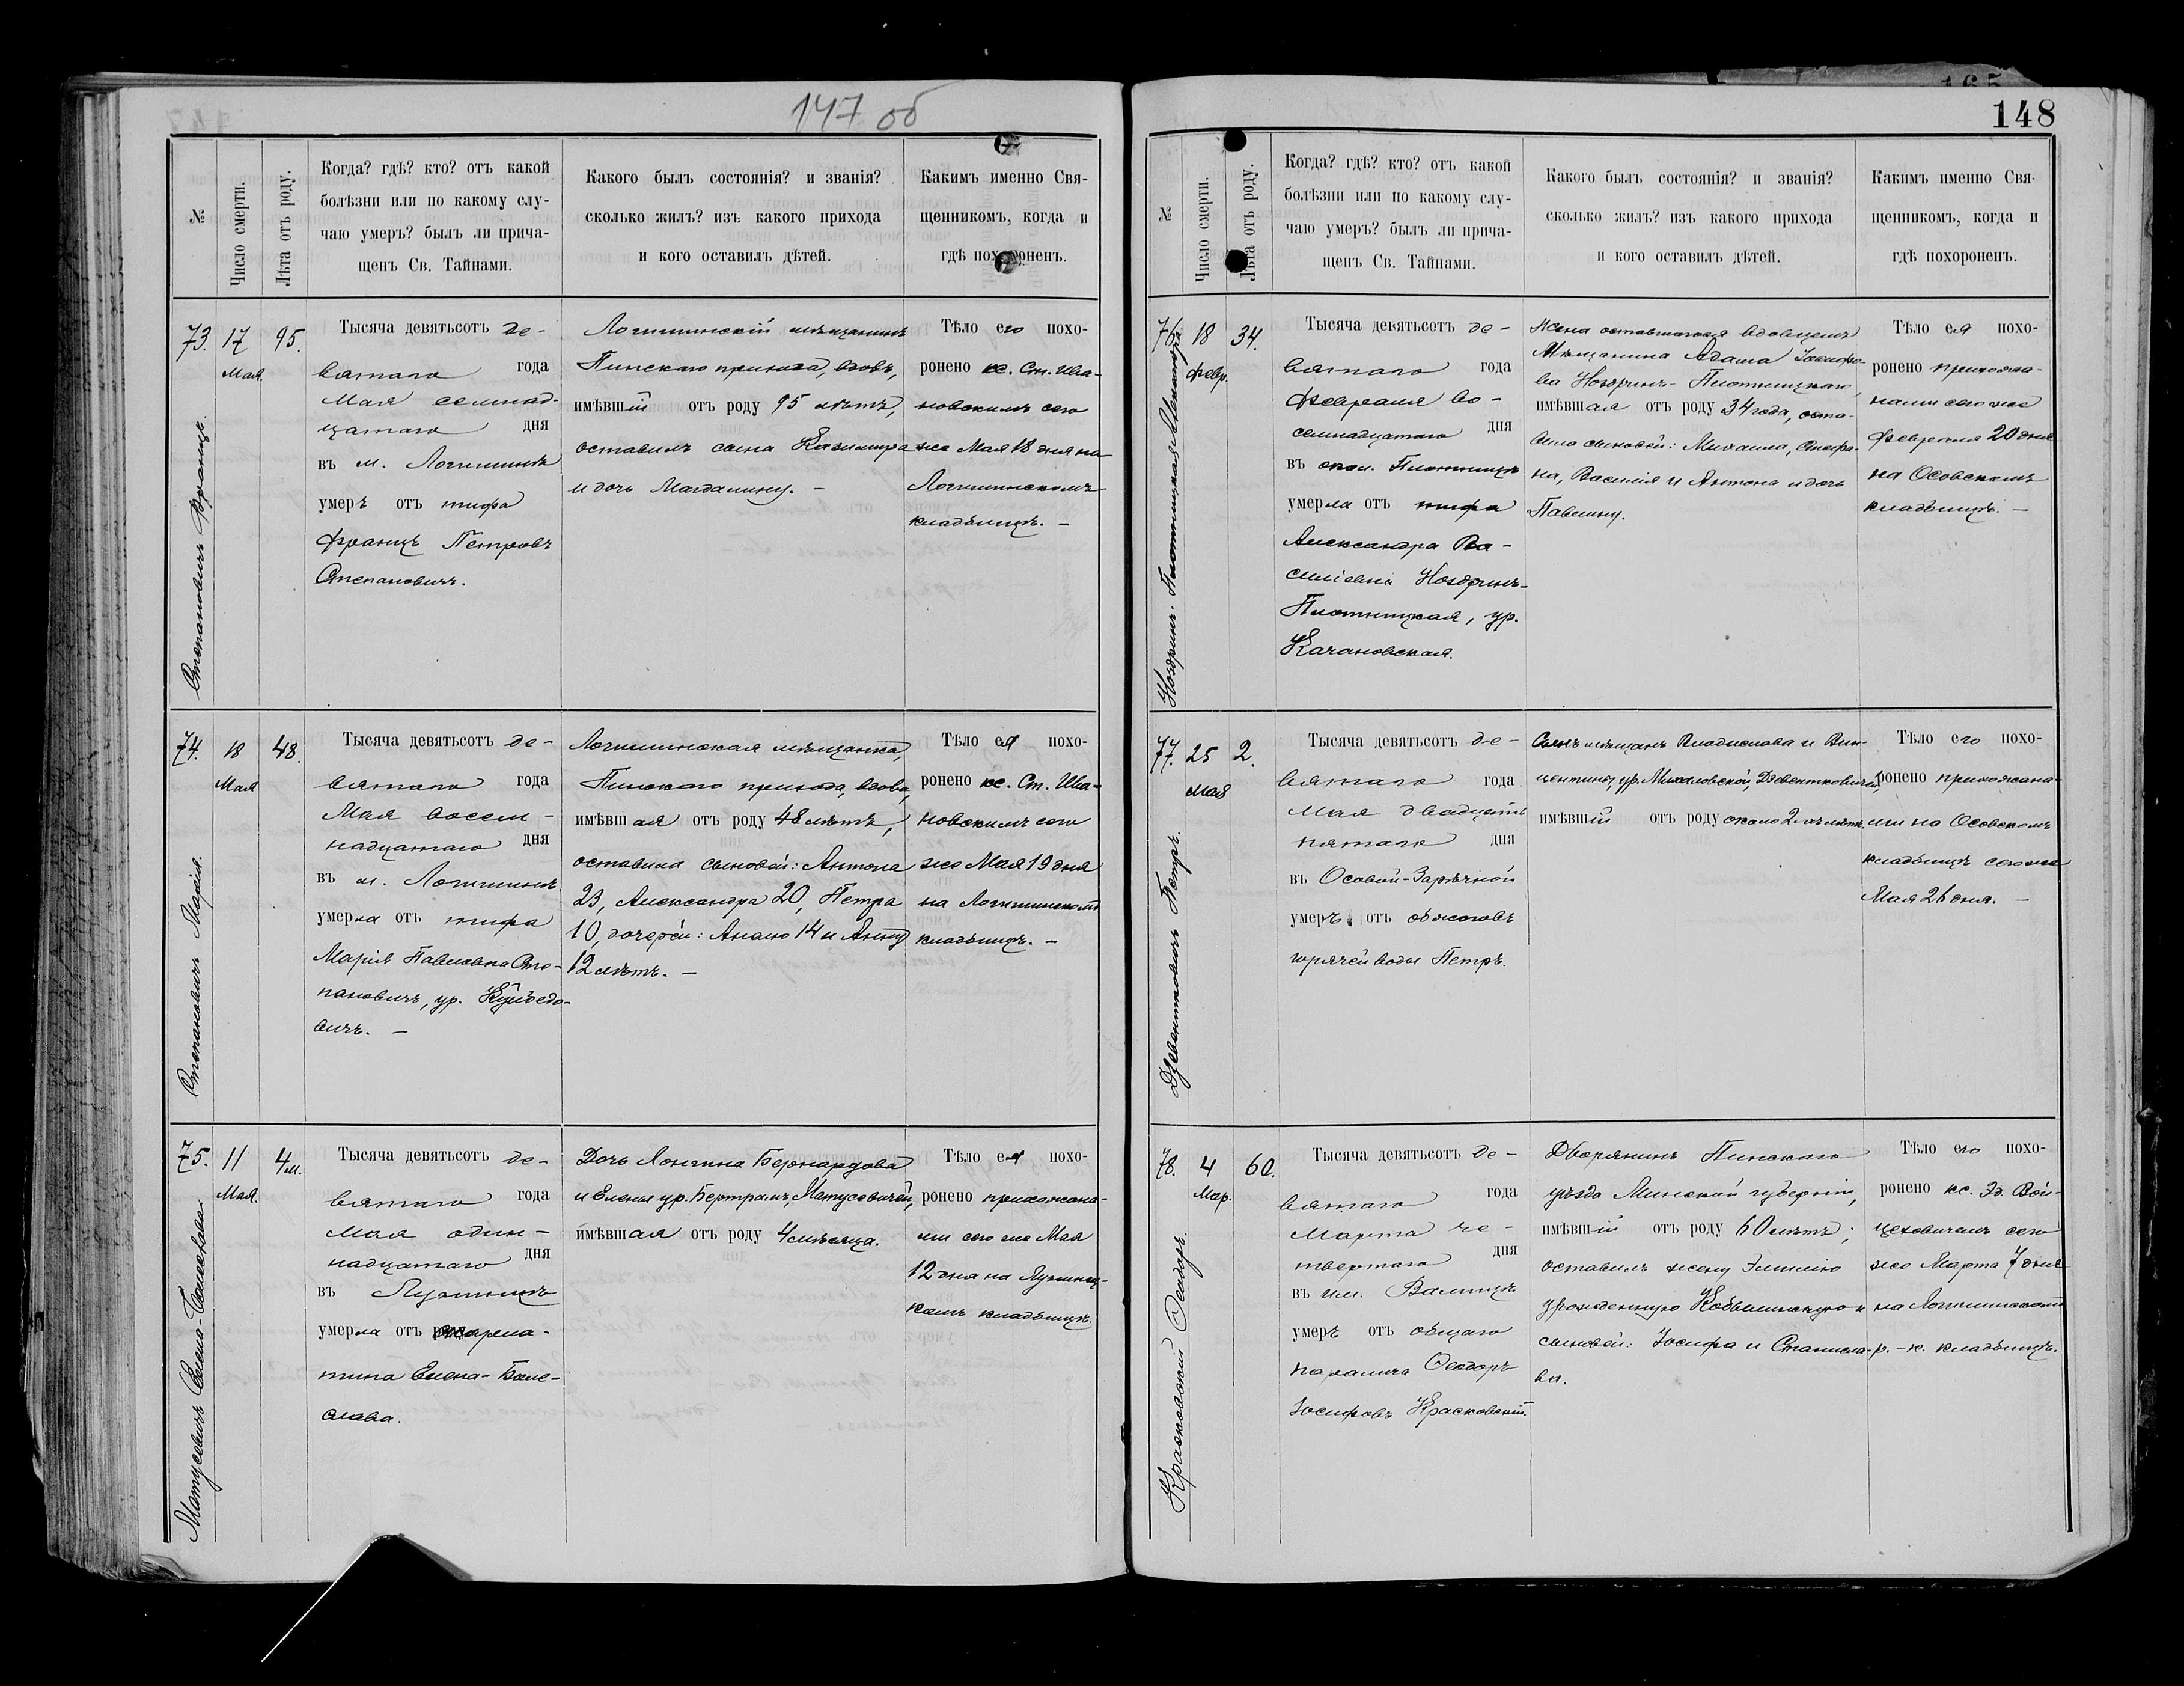 147 об
№
Число смерти.
Лѣта отъ роду.
Когда? гдѣ? кто? отъ какой
болѣзни или по какому слу-
чаю умеръ? былъ ли прича-
щенъ Св. Тайнами.
Какого былъ состоянія? и званія?
сколько жилъ? изъ какого прихода
и кого оставилъ дѣтей.
Какимъ именно Свя-
щенникомъ, когда и
гдѣ похороненъ.
73.
Степановичъ Францъ.
17
Мая.
95.
Тысяча девятьсотъ де-
вятаго года
Мая семнад-
цатаго дня
въ м. Логишинѣ
умеръ отъ тифа
Францъ Петровъ
Степановичъ.
Логишинскій мѣщанинъ
Пинскаго прихода, вдовъ,
имѣвшій отъ роду 95 лѣтъ,
оставилъ сына Казимира
и дочь Магдалину. –
Тѣло его похо-
ронено кс. Ст. Ива-
новскимъ сего
же Мая 18 дня на
Логишинскомъ
кладбищѣ. –
74.
Степановичъ Марія.
18
Мая
48.
Тысяча девятьсотъ де-
вятаго года
Мая восем-
надцатаго дня
въ м. Логишинѣ
умерла отъ тифа
Марія Павловна Сте-
пановичъ, ур. Куйбедо-
вичъ. –
Логишинская мѣщанка,
Пинскаго прихода, вдова,
имѣвшая отъ роду 48 лѣтъ,
оставила сыновей: Антона
23, Александра 20, Петра
10, дочерей: Анелю 14 и Анну
12 лѣтъ. –
Тѣло ея похо-
ронено кс. Ст. Ива-
новскимъ сего
же Мая 19 дня
на Логишинскомъ
кладбищѣ. –
75.
Матусевичъ Елена-Болеслава
11
Мая.
4 м.
Тысяча девятьсотъ де-
вятаго года
мая один-
надцатаго дня
въ
умерла отъ скарла-
тина Елена-Боле-
слава.
Дочь Лонгина Бернардова
и Елены ур. Бертрамъ, Матусевичей,
имѣвшая отъ роду 4 мѣсяца.
Тѣло ея похо-
ронено прихожана-
ми сего же Мая
12 дня на
комъ кладбищѣ.
165
148
№
Число смерти.
Лѣта отъ роду.
Когда? гдѣ? кто? отъ какой
болѣзни или по какому слу-
чаю умеръ? былъ ли прича-
щенъ Св. Тайнами.
Какого былъ состоянія? и званія?
сколько жилъ? изъ какого прихода
и кого оставилъ дѣтей.
Какимъ именно Свя-
щенникомъ, когда и
гдѣ похороненъ.
76.
Ноздринъ-Плотницкая Александра
18
февр.
34.
Тысяча девятьсотъ де-
вятаго года
Февраля во-
семнадцатаго дня
въ окол. Плотницѣ
умерла отъ тифа
Александра Ва-
силіевна Ноздринъ-
Плотницкая, ур.
Качановская.
Жена оставшагося вдовцемъ
Мѣщанина Адама Іосифо-
ва Ноздринъ-Плотницкаго,
имѣвшая отъ роду 34 года, оста-
вила сыновей: Михаила, Стефа-
на, Василія и Антона и дочь
Павлину.
Тѣло ея похо-
ронено прихожа-
нами сего же
Февраля 20 дня
на Осовскомъ
кладбищѣ. –
77.
Дзевентковичъ Петръ.
25
Мая
2.
Тысяча девятьсотъ де-
вятаго года
Мая двадцать
пятаго дня
въ Осовой-Зарѣчной
умеръ отъ обжоговъ
горячей воды Петръ.
Сынъ мѣщанъ Владислава и Вин-
центины, ур. Михаловской, Дзевентковичей,
имѣвшій отъ роду около 2-хъ лѣтъ.
Тѣло его похо-
ронено прихожана-
ми на Осовскомъ
кладбищѣ сего же
Мая 26 дня. –
78.
Красковскій Ѳеодоръ.
4
Мар.
60.
Тысяча девятьсотъ де-
вятаго года
Марта че-
твертаго дня
въ им. Валищѣ
умеръ отъ общаго
паралича Ѳеодоръ
Іосифовъ Красковскій.
Дворянинъ Пинскаго
уѣзда Минской губерніи,
имѣвшій отъ роду 60 лѣтъ;
оставилъ жену Эмилію
урожденную Кобылинскую и
сыновей: Іосифа и Станисла-
ва.
Тѣло его похо-
ронено кс. Эд. Вой-
цеховичемъ сего
же Марта 7 дня
на Логишинскомъ
р.-к. кладбищѣ.